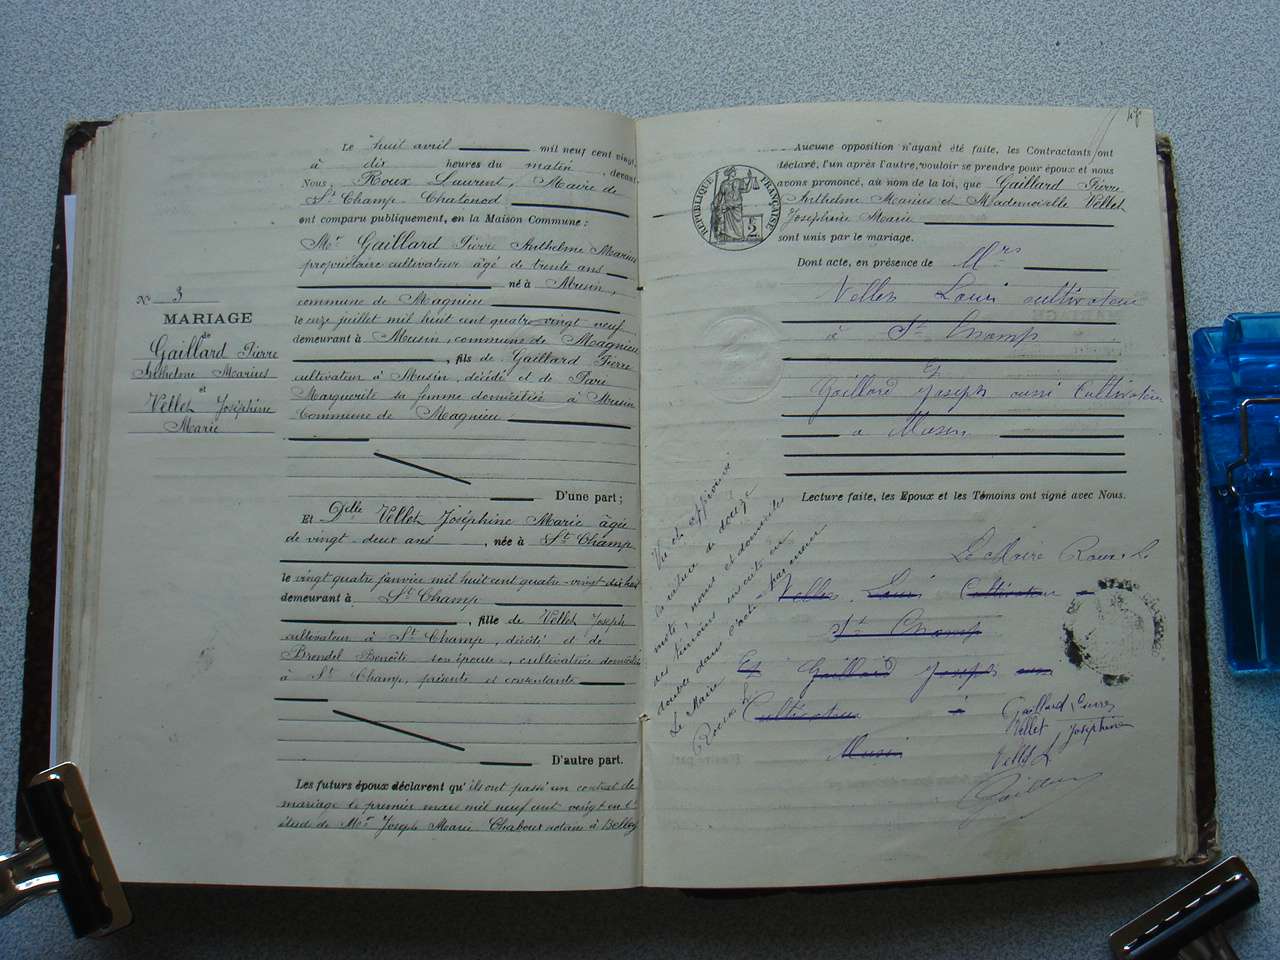 Le huit avril mil neuf cent vingt,
à dix heures du matin, devant
Nous, Roux Laurent, Maire de
St Champ-Chatonod
ont comparu publiquement, en la Maison Commune :
Mr Gaillard Pierre Anthelme Marius
propriétaire cultivateur âgé de trente ans
né à Musin,
commune de Magnieu
le onze juillet mil huit cent quatre-vingt neuf
demeurant à Musin, commune de Magnieu
, fils de Gaillard Pierre
cultivateur à Musin, décédé et de
Marguerite sa femme domiciliée à Musin
Commune de Magnieu
D'une part ;
Et Dlle Vellet Joséphine Marie âgée
de vingt-deux ans, née à St Champ
le vingt quatre janvier mil huit cent quatre-vingt dix huit
demeurant à St Champ
, fille de Vellet Joseph
cultivateur à St Champ, décédé et de
Brondel Benoîte son épouse, cultivatrice domiciliée
à St Champ, présente et consentante
D'autre part.
Les futurs époux déclarent qu'ils ont passé un contrat de
mariage le premier mars mil neuf cent vingt en l'
étude de Mer Joseph Marie Chaboux notaire à Belley
No 3
MARIAGE
de
Gaillard Pierre
Anthelme Marius
et
Vellet Joséphine
Marie
RÉPUBLIQUE FRANÇAISE
2
Aucune opposition n'ayant été faite, les Contractants ont
déclaré, l'un après l'autre, vouloir se prendre pour époux et nous
avons prononcé, au nom de la loi, que Gaillard Pierre
Anthelme Marius et Mademoiselle Vellet
Joséphine Marie
sont unis par le mariage.
Dont acte, en présence de Mrs
Vellet Louis cultivateur
à St Champ
Et
Gaillard Joseph aussi Cultivateur
a Musin
Lecture faite, les Epoux et les Témoins ont signé avec Nous.
Le Maire Roux L
Vellet Louis Cultivateur à
St Champ
Et Gaillard Joseph
Cultivateur à
Musin
Gaillard Pierre
Vellet Joséphine
Vellet L
Gaillard
Vu et approuvé
la rature de douze
mots, noms et domiciles
des témoins inscrits en
double dans l'acte par erreur
Le Maire
Roux L